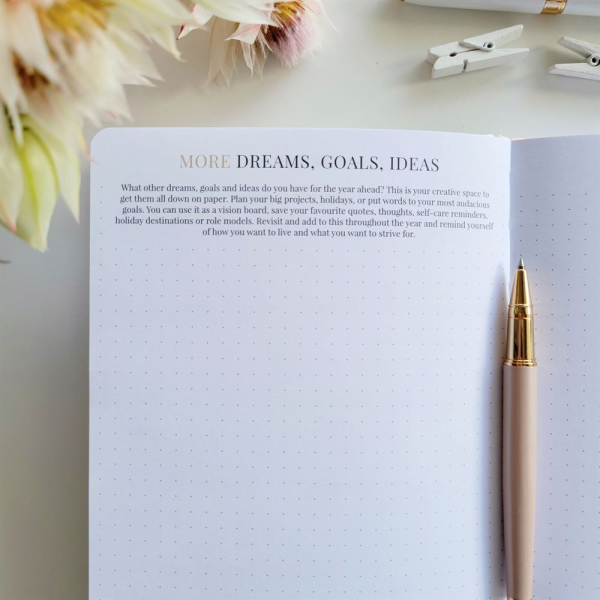 MORE DREAMS, GOALS, IDEAS
What other dreams, goals and ideas do you have for the year ahead? This is your creative space to
get them all down on paper. Plan your big projects, holidays, or put words to your most audacious
goals. You can use it as a vision board, save your favourite quotes, thoughts, self-care reminders,
holiday destinations or role models. Revisit and add to this throughout the year and remind yourself
of how you want to live and what you want to strive for.